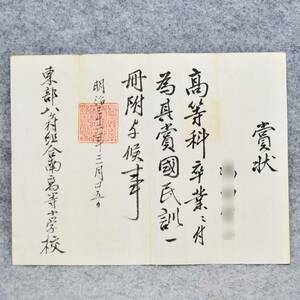 賞状
高等科卒業ニ付
為其賞國民訓一
冊附与候事
明治三十五年三月廿五日
東部八ヶ村組合南高等小学校